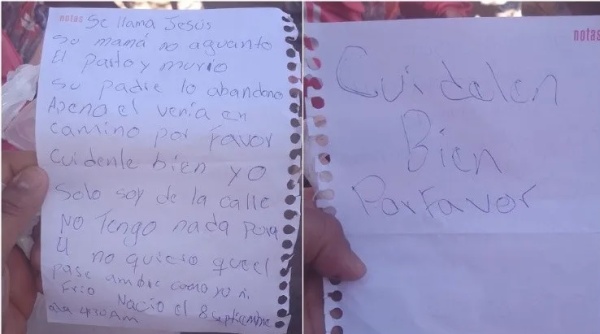 notas
Se llama Jesús
su mamá no aguanto
El Parto y murio
su padre lo abandono
Apena el venia en
camino por Favor
Cuidenle bien yo
Solo soy de la calle
No Tengo nada para
no quiero que el
pase ambre como yo ni
Frio Nacio el 8 septiembre
Am
notas
Cuidelen
Bien
Por Favor